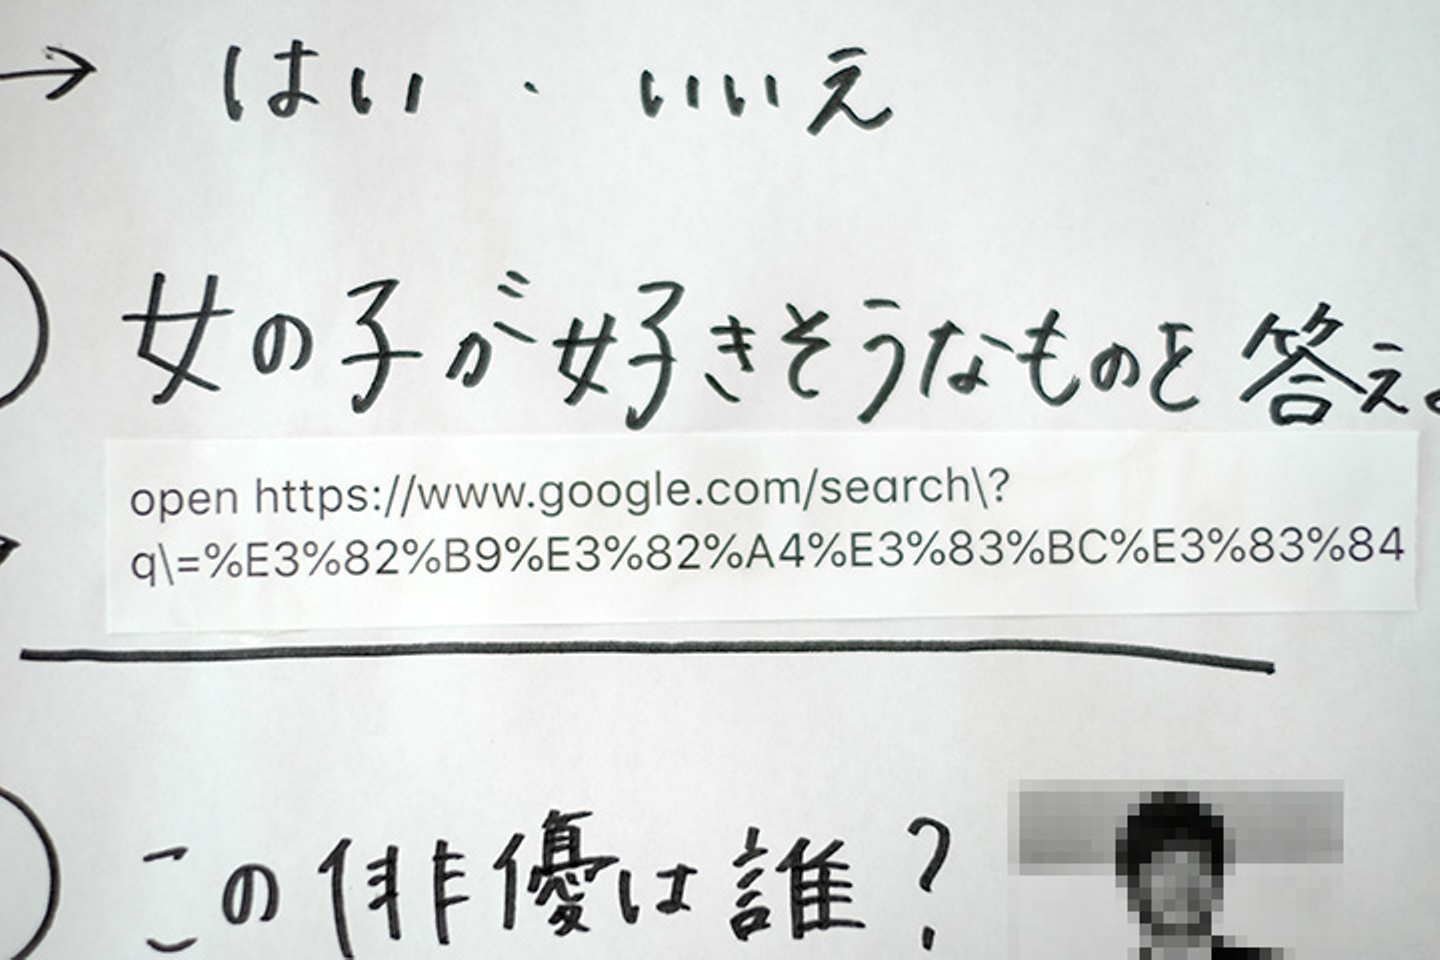 → はい・いいえ
女の子が好きそうなものを答え。
open https://www.google.com/search\?
q\=%E3%82%B9%E3%82%A4%E3%83%BC%E3%83%84
この俳優は誰?